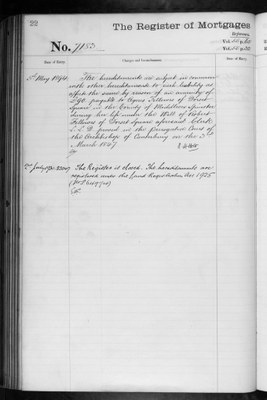 22
The Register of Mortgages
References
No. 7153
Date of Entry.
Charges and Incumbrances.
Date of Entry.
May 1896
The hereditaments are subject in common
with other hereditaments to such liability as
affect the same by reason of an annuity of
payable to Agnes Fellowes of Dorset
Square in the County of Middlesex spinster
during her life under the Will of Robert
Fellowes of Dorset Square aforesaid Clerk
L.L.D. proved in the Prerogative Court of
the Archbishop of Canterbury on the
March 1847
The Register is closed. The hereditaments are
registered under the Land Registration Act 1925